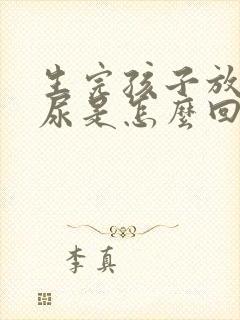 生完孩子放
尿是怎麼回
李真